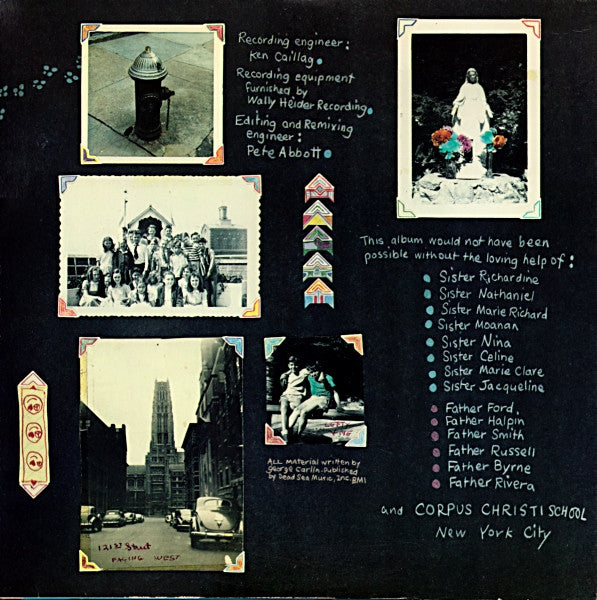 Recording engineer:
Ken Caillag
Recording equipment
furnished by
Wally Heider Recording
Editing and Remixing
engineer:
Pete Abbott
This album would not have been
possible without the loving help of:
Sister Richardine
Sister Nathaniel
Sister Marie Richard
Sister Moanan
Sister Nina
Sister Celine
Sister Marie Clare
Sister Jacqueline
Father Ford,
Father Halpin
Father Smith
Father Russell
Father Byrne
Father Rivera
and CORPUS CHRISTI SCHOOL
New York City
ALL Material written by
George Carlin. Published
by Dead Sea Music, Inc. BMI
121st Street
FACING WEST